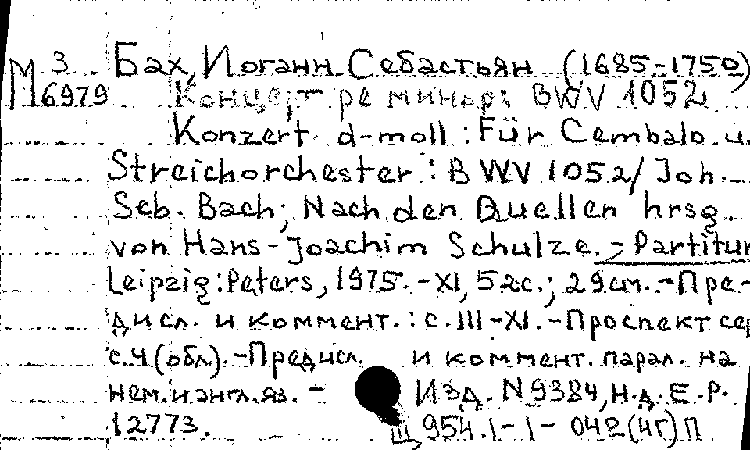 М 3 Бах, Иоганн Себастьян (1685-1750)
6979 Концерт ре минор: BWV 1052
Konzert d-moll : Für Cembalo u.
Streichorchester : BWV 1052/ Joh.
Seb. Bach; Nach den Quellen hrsg.
von Hans-Joachim Schulze. - Partitur
Leipzig: Peters, 1975. - XI, 52с.; 29см. - Пре-
дисл. и коммент. : с. III-XI. - Проспект сер
с.4 (обл). - Предисл. и коммент. парал. на
нем. и англ. яз. - Изд. N 9384, Н.д. E.P.
12773.
Щ 954.1-1-042(4Г)П